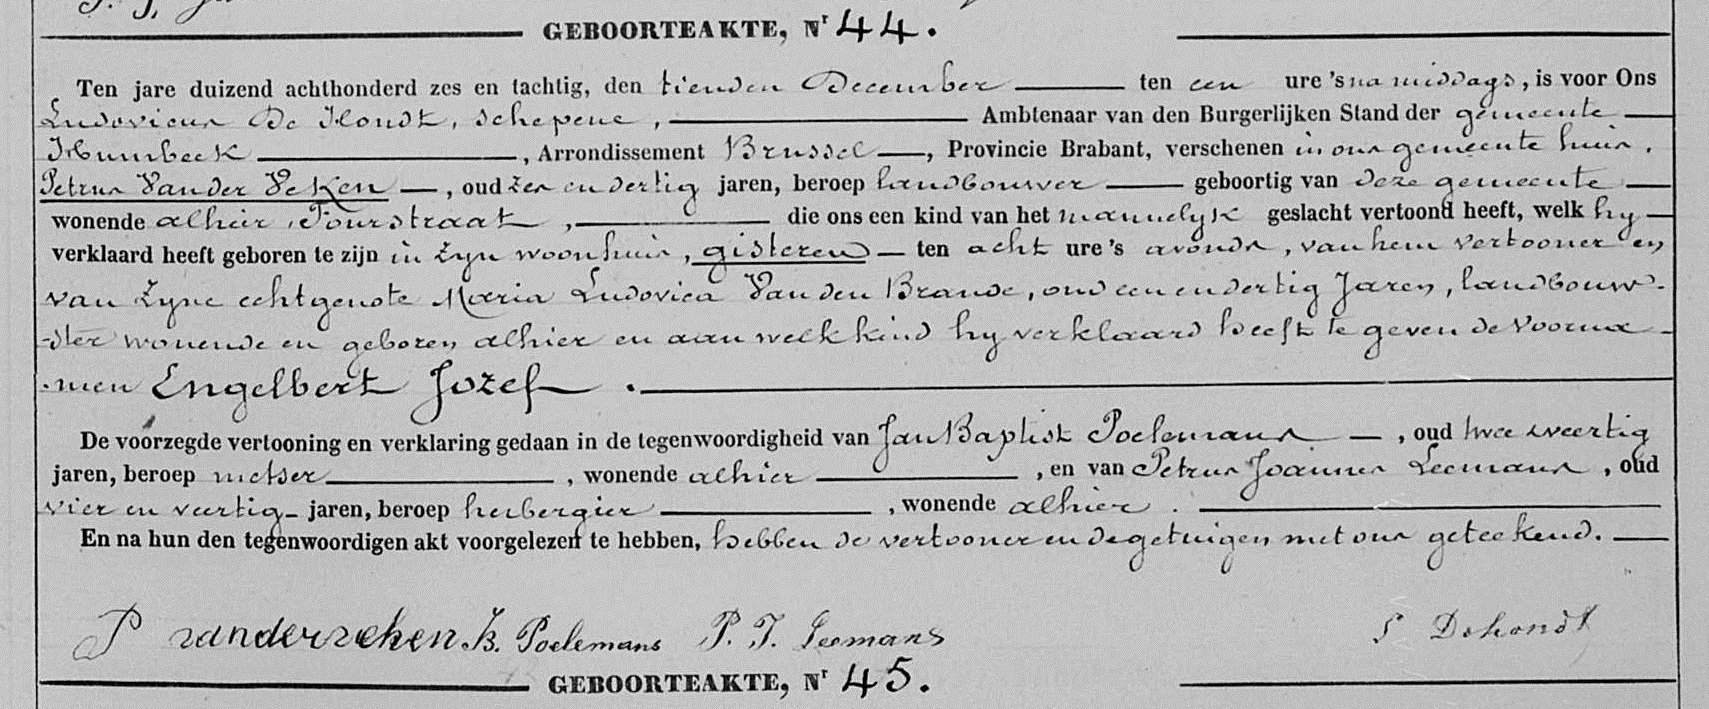 GEBOORTEAKTE, Nr 44.
Ten jare duizend achthonderd zes en tachtig, den tienden December ten een ure 's na middags, is voor Ons
Ludovicus De Hondt, schepene, Ambtenaar van den Burgerlijken Stand der gemeente
Humbeek, Arrondissement Brussel, Provincie Brabant, verschenen in ons gemeente huis,
Petrus Van der Veken, oud zes en dertig jaren, beroep landbouwer geboortig van deze gemeente
wonende alhier, die ons een kind van het mannelyk geslacht vertoond heeft, welk hy
verklaard heeft geboren te zijn in zyn woonhuis, gisteren ten acht ure's avonds, van hem vertooner en
van zyne echtgenote Maria Ludovica Van den Brande, oud een en dertig Jaren, landbouw-
-ster wonende en geboren alhier en aan welk kind hy verklaard heeft te geven de voorna-
-men Engelbert Jozef.
De voorzegde vertooning en verklaring gedaan in de tegenwoordigheid van Jan Baptist Poelemans, oud twee veertig
jaren, beroep metser, wonende alhier, en van Petrus Joannes Leemans, oud
vier en veertig jaren, beroep herbergier, wonende alhier.
En na hun den tegenwoordigen akt voorgelezen te hebben, hebben de vertooner en de getuigen met ons geteekend.
P vanderveken J.B. Poelemans P. J. Leemans Dehondt
GEBOORTEAKTE, Nr 45.